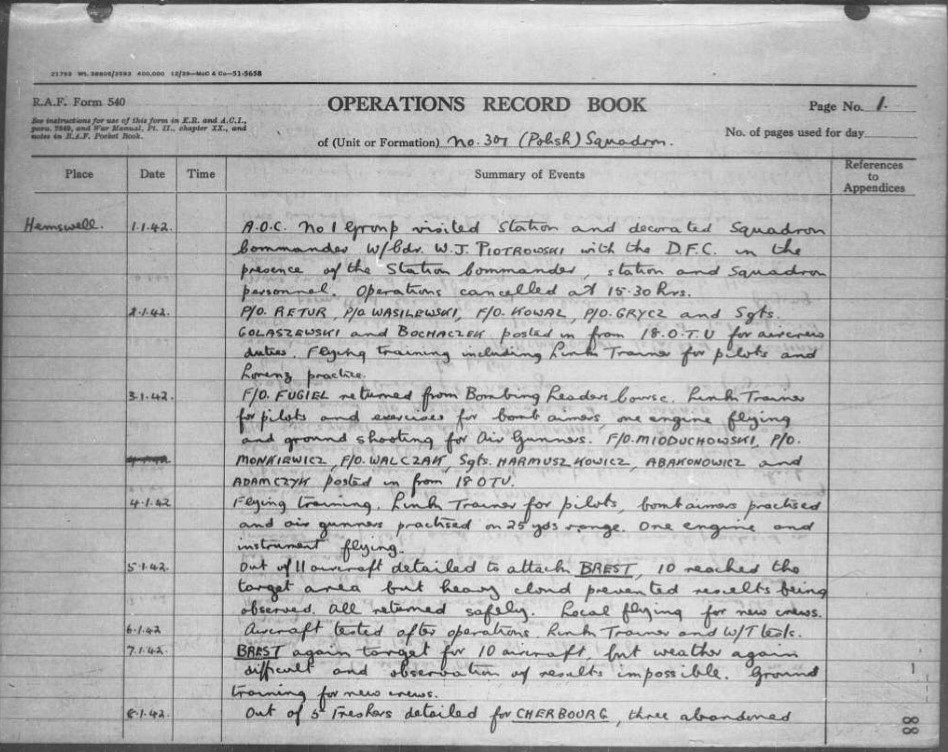 51798 Wt. 28808/2583 400,000 12/39—McC & Co—51-5658
R.A.F. Form 540
OPERATIONS RECORD BOOK
Page No. 1.
See instructions for use of this form in K.R. and A.C.I.,
para. 2349, and War Manual, Pt. II., chapter XX., and
notes in R.A.F. Pocket Book.
of (Unit or Formation) No. 301 (Polish) Squadron.
No. of pages used for day
Place Date Time Summary of Events References to Appendices
Hemswell. 1.1.42. A.O.C. No 1 Group visited Station and decorated Squadron
Commander W/Cdr. W.J. PIOTROWSKI with the D.F.C. in the
presence of the Station Commander, station and Squadron
personnel. Operations cancelled at 15.30 hrs.
2.1.42. P/O. RETUR, P/O WASILEWSKI, F/O. KOWAL, P/O. GRYCZ and Sgts.
GOLASZEWSKI and BOCHACZEK posted in from 18.O.T.U for aircrew
duties. Flying training including Link Trainer for pilots and
Lorenz practice.
3.1.42. F/O. FUGIEL returned from Bombing Leaders Course. Link Trainer
for pilots and exercises for bomb aimers, one engine flying
and ground shooting for Air Gunners. F/O. MIODUCHOWSKI, P/O.
MONKIEWICZ, F/O. WALCZAK, Sgts. HARMUSZKOWICZ, ABAKONOWICZ and
ADAMCZYK posted in from 18 OTU.
4.1.42 Flying training. Link Trainer for pilots, bombaimers practised
and air gunners practised on 25 yds range. One engine and
instrument flying.
5.1.42. Out of 11 aircraft detailed to attack BREST, 10 reached the
target area but heavy cloud prevented results being
observed. All returned safely. Local flying for new crews.
6.1.42 Aircraft tested after operations. Link Trainer and W/T tests.
7.1.42. BREST again target for 10 aircraft, but weather again
difficult and observation of results impossible. Ground
training for new crews.
8.1.42. Out of 5 Freshers detailed for CHERBOURG, three abandoned
88